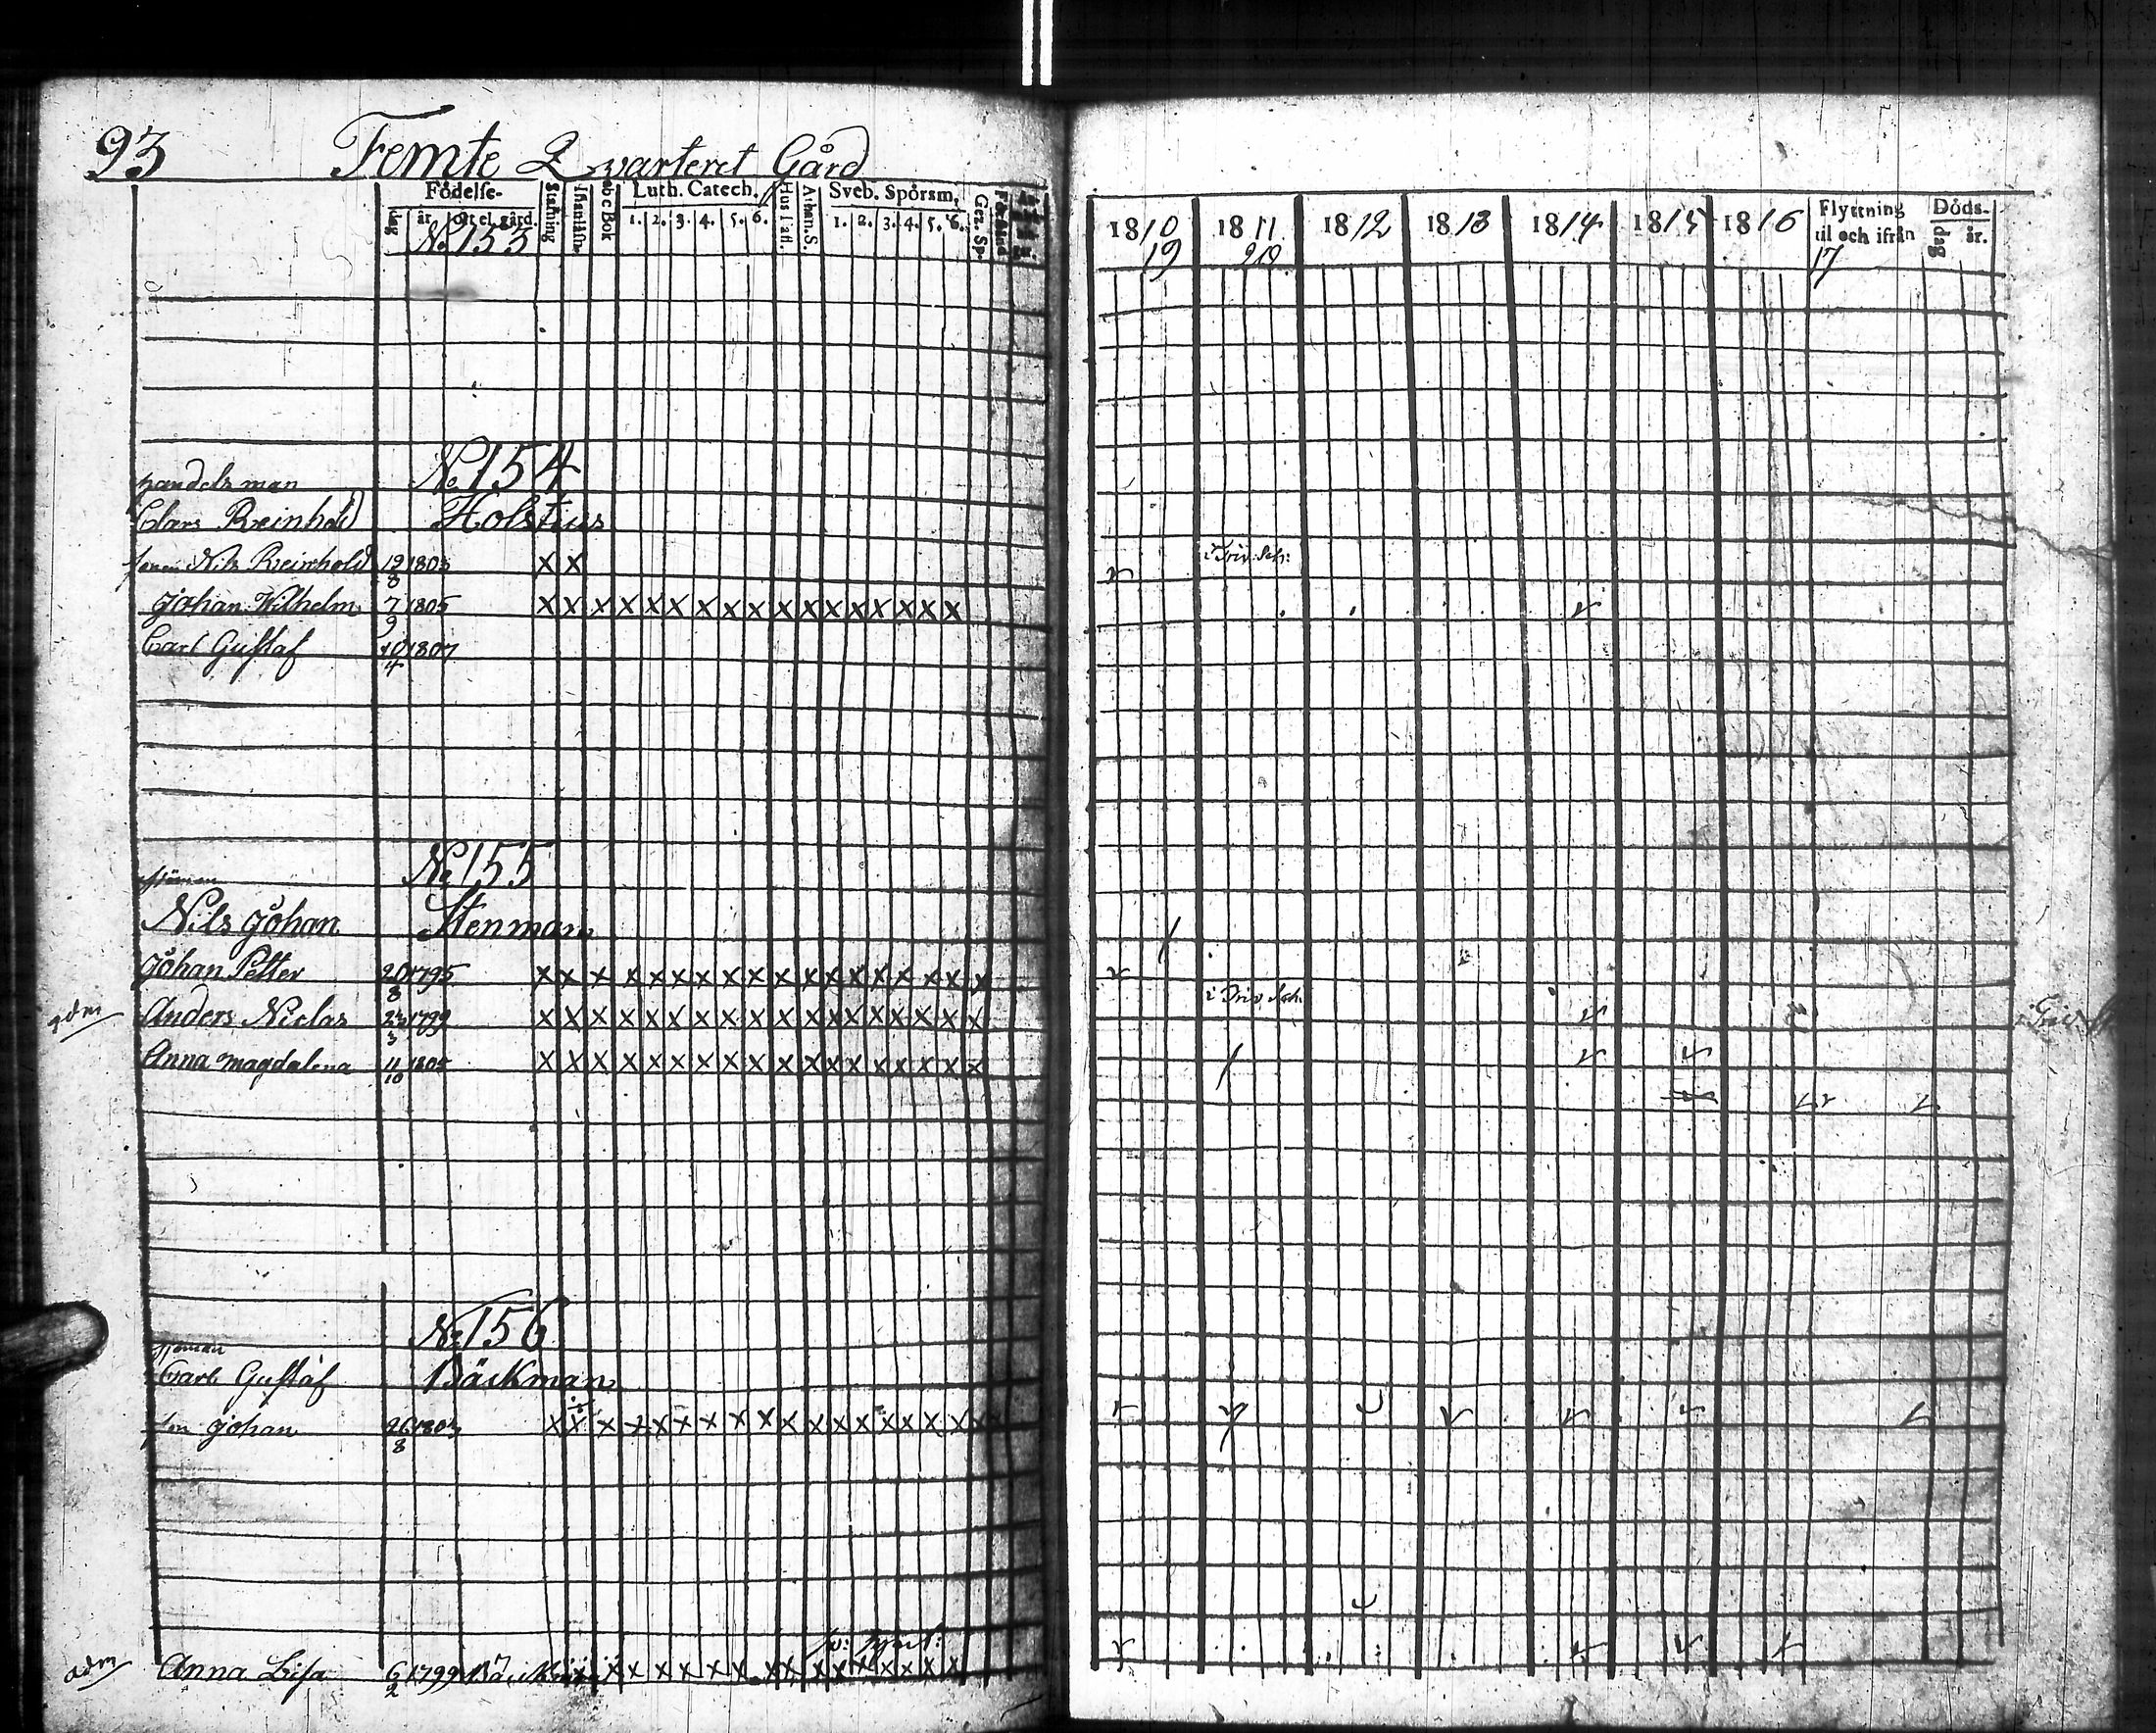 93 Femte Qvarteret Gård
Födelse-
dag år ort el. gård.
Stafning
Abc Bok
Luth. Catech.
1. 2. 3. 4. 5. 6.
Hustafl.
Athan. S.
Sveb. Spörsm.
1. 2. 3. 4. 5. 6.
Gez. Sp.
Förstånd
No 153
1810 1811 1812 1813 1814 1815 1816
Flyttning til och ifrån
Döds-
dag år.
19 20 17
No 154
handels man
Claes Reinhold Holstius
sonen Nils Reinhold 19/8 1803 x x i Triv. Sch:
Johan Wilhelm 7/9 1805 x x x x x x x x x x x x x x x x x
Carl Gustaf 10/4 1807
No 155
Nils Johan Stenman
Johan Petter 20/8 1795 x x x x x x x x x x x x x x x x x x
i Triv. Sch.
adm Anders Niclas 24/3 1799 x x x x x x x x x x x x x x x x x x
Anna Magdalena 11/10 1805 x x x x x x x x x x x x x x x x x x
No 156
Carl Gustaf Bäckman
son Johan 26/8 1803 x x x x x x x x x x x x x x x x x x
adm Anna Lisa 6/2 1799 Bäckman x x x x x x x x x x x x x x